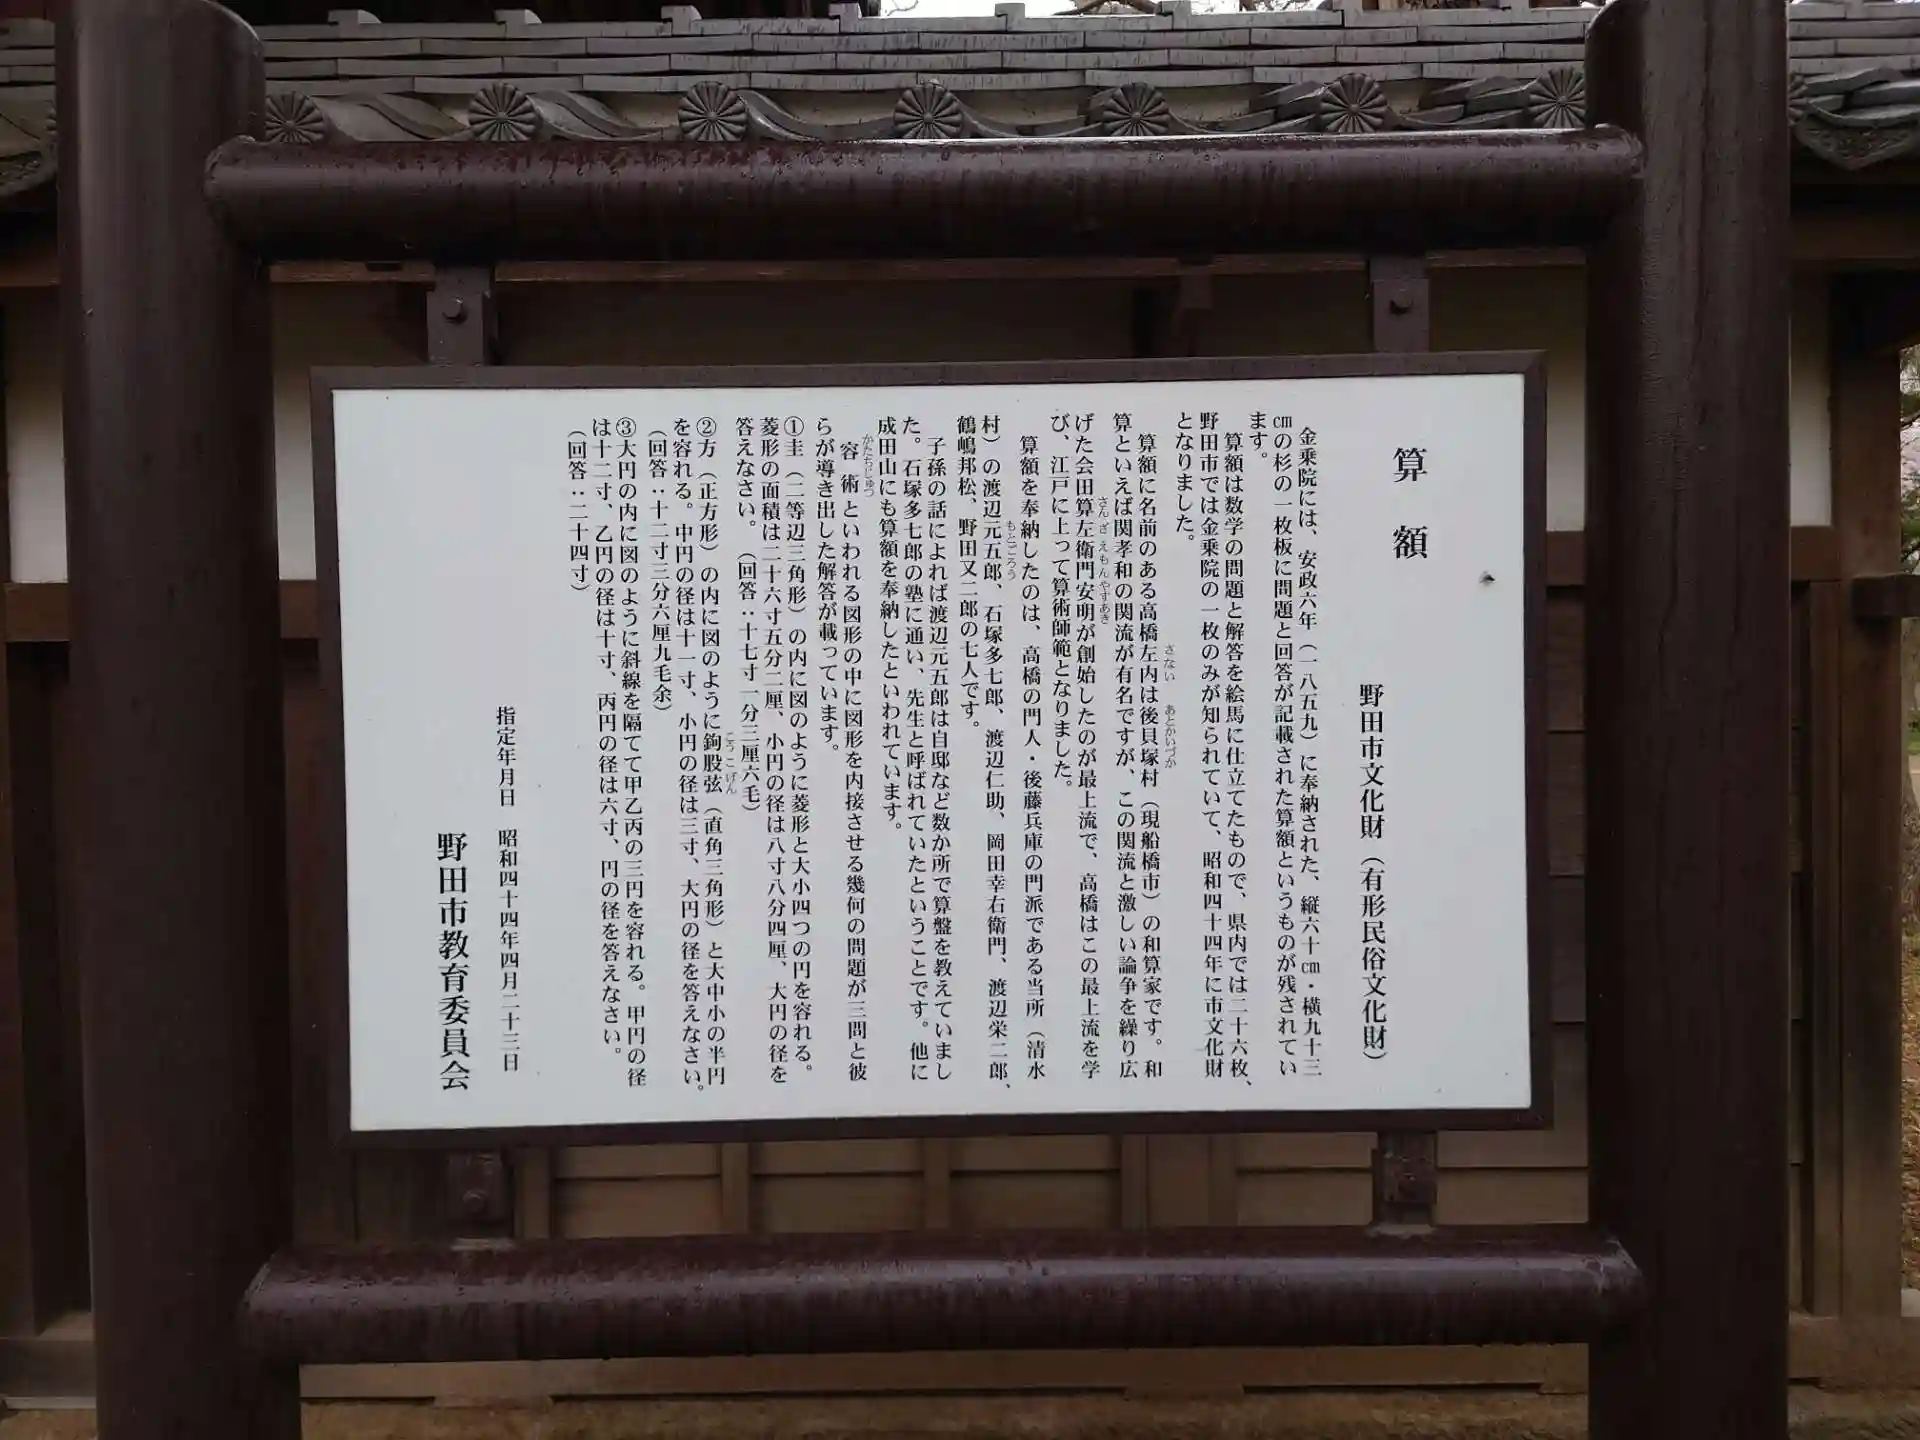 算額
野田市文化財（有形民俗文化財）
金乗院には、安政六年（一八五九）に奉納された、縦六十㎝・横九十三
㎝の杉の一枚板に問題と回答が記載された算額というものが残されてい
ます。
算額は数学の問題と解答を絵馬に仕立てたもので、県内では二十六枚、
野田市では金乗院の一枚のみが知られていて、昭和四十四年に市文化財
となりました。
算額に名前のある高橋左内は後貝塚村（現船橋市）の和算家です。和
さない あとかいづか
算といえば関孝和の関流が有名ですが、この関流と激しい論争を繰り広
げた会田算左衛門安明が創始したのが最上流で、高橋はこの最上流を学
さんざえもんやすあき
び、江戸に上って算術師範となりました。
算額を奉納したのは、高橋の門人・後藤兵庫の門派である当所（清水
村）の渡辺元五郎、石塚多七郎、渡辺仁助、岡田幸右衛門、渡辺栄二郎、
もとごろう
鶴嶋邦松、野田又二郎の七人です。
子孫の話によれば渡辺元五郎は自邸など数か所で算盤を教えていまし
た。石塚多七郎の塾に通い、先生と呼ばれていたということです。他に
成田山にも算額を奉納したといわれています。
容術といわれる図形の中に図形を内接させる幾何の問題が三問と彼
かたちじゅつ
らが導き出した解答が載っています。
①圭（二等辺三角形）の内に図のように菱形と大小四つの円を容れる。
菱形の面積は二十六寸五分二厘、小円の径は八寸八分四厘、大円の径を
答えなさい。（回答：十七寸一分三厘六毛）
②方（正方形）の内に図のように鉤股弦（直角三角形）と大中小の半円
こうこげん
を容れる。中円の径は十一寸、小円の径は三寸、大円の径を答えなさい。
（回答：十二寸三分六厘九毛余）
③大円の内に図のように斜線を隔てて甲乙丙の三円を容れる。甲円の径
は十二寸、乙円の径は十寸、丙円の径は六寸、円の径を答えなさい。
（回答：二十四寸）
指定年月日　昭和四十四年四月二十三日
野田市教育委員会